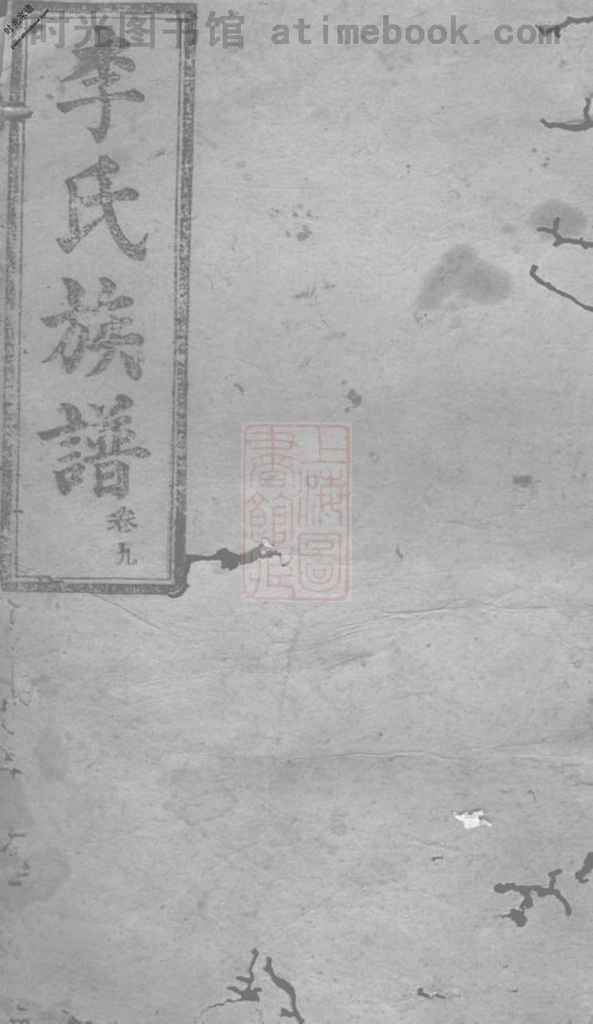 时光图书馆 atimebook.com
李氏族譜
卷九
上海圖
書館藏